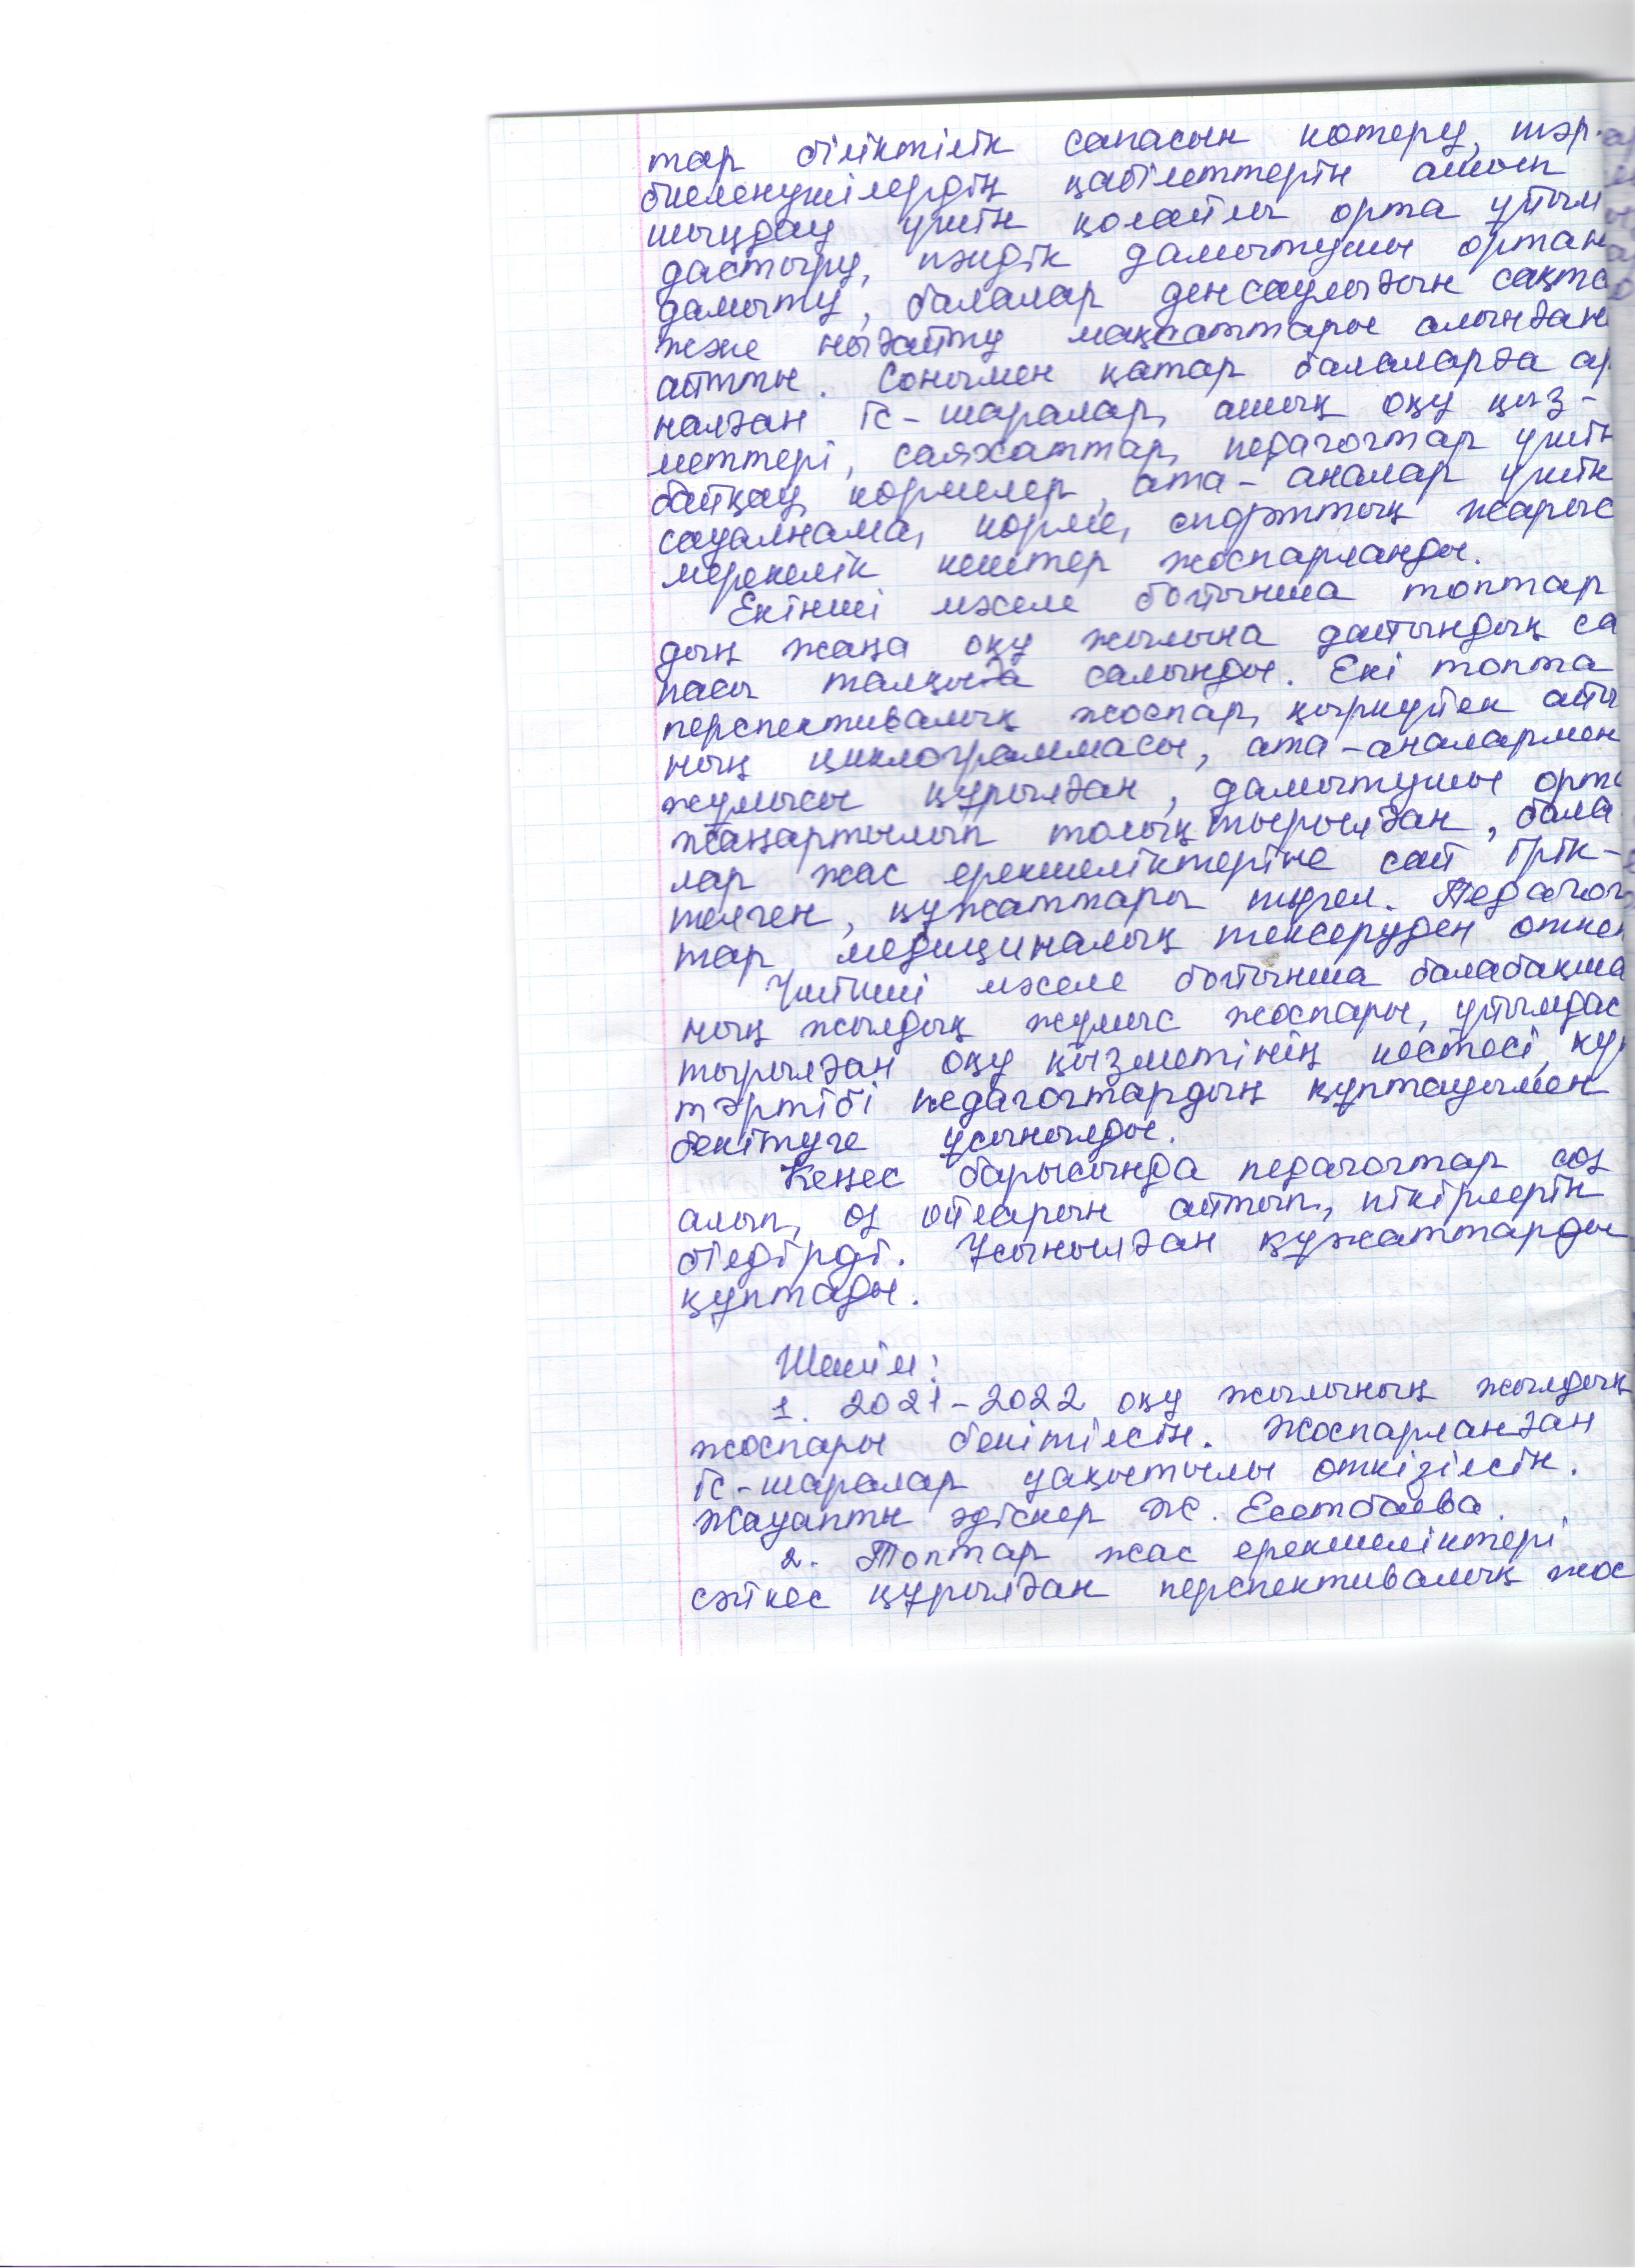 тар біліктілік сапасын көтеру, тәр-
биеленушілердің қабілеттерін ашып
шыңдау үшін қолайлы орта ұйым
дастыру, пәндік дамытушы ортан
дамыту, балалар денсаулығын сақта
және нығайту мақсаттары алынған
айтты. Сонымен қатар балаларға ар
налған іс-шаралар, ашық оқу қыз-
меттері, саяхаттар, педагогтар үшін
байқау, көрмелер, ата-аналар үшін
сауалнама, көрме, спорттық жарыс
мерекелік кештер жоспарланды.
Екінші мәселе бойынша топтар
дың жаңа оқу жылына дайындық са
пасы талқыға салынды. Екі топта
перспективалық жоспар, қыркүйек айы
ның циклограммасы, ата-аналармен
жұмысы құрылған, дамытушы орта
жаңартылып толықтырылған, бала
лар жас ерекшеліктеріне сай ірік-
телген, құжаттары түгел. Педагог
тар медициналық тексеруден өткен
Үшінші мәселе бойынша балабақша
ның жылдық жұмыс жоспары, ұйымдас
тырылған оқу қызметінің кестесі, кү
тәртібі педагогтардың құптауымен
бекітуге ұсынылды.
Кеңес барысында педагогтар сөз
алып, өз ойларын айтып, пікірлерін
білдірді. Ұсынылған құжаттарды
құптады.
Шешім:
1. 2021-2022 оқу жылының жылдық
жоспары бекітілсін. Жоспарланған
іс-шаралар уақытылы өткізілсін.
Жауапты әдіскер Ж. Есетбаева.
2. Топтар жас ерекшеліктері
сәйкес құрылған перспективалық жос